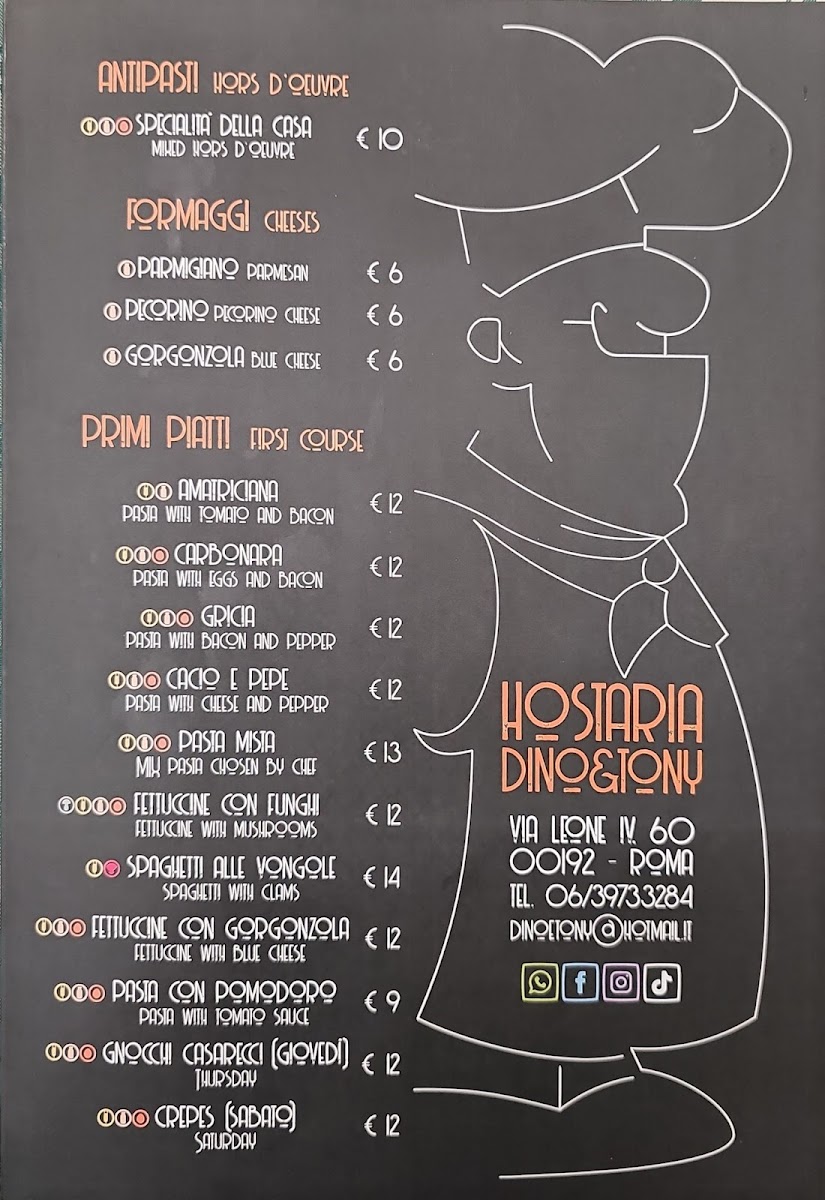 ANTIPASTI HORS D'OEUVRE
SPECIALITA' DELLA CASA € 10
MIXED HORS D'OEUVRE
FORMAGGI CHEESES
PARMIGIANO PARMESAN € 6
PECORINO PECORINO CHEESE € 6
GORGONZOLA BLUE CHEESE € 6
PRIMI PIATTI FIRST COURSE
AMATRICIANA € 12
PASTA WITH TOMATO AND BACON
CARBONARA € 12
PASTA WITH EGGS AND BACON
GRICIA € 12
PASTA WITH BACON AND PEPPER
CACIO E PEPE € 12
PASTA WITH CHEESE AND PEPPER
PASTA MISTA € 13
MIX PASTA CHOSEN BY CHEF
FETTUCCINE CON FUNGHI € 12
FETTUCCINE WITH MUSHROOMS
SPAGHETTI ALLE VONGOLE € 14
SPAGHETTI WITH CLAMS
FETTUCCINE CON GORGONZOLA € 12
FETTUCCINE WITH BLUE CHEESE
PASTA CON POMODORO € 9
PASTA WITH TOMATO SAUCE
GNOCCHI CASARECCI (GIOVEDÍ) € 12
THURSDAY
CREPES (SABATO) € 12
SATURDAY
HOSTARIA
DINO&TONY
VIA LEONE IV, 60
00192 - ROMA
TEL. 06/39733284
DINOETONY@HOTMAIL.IT